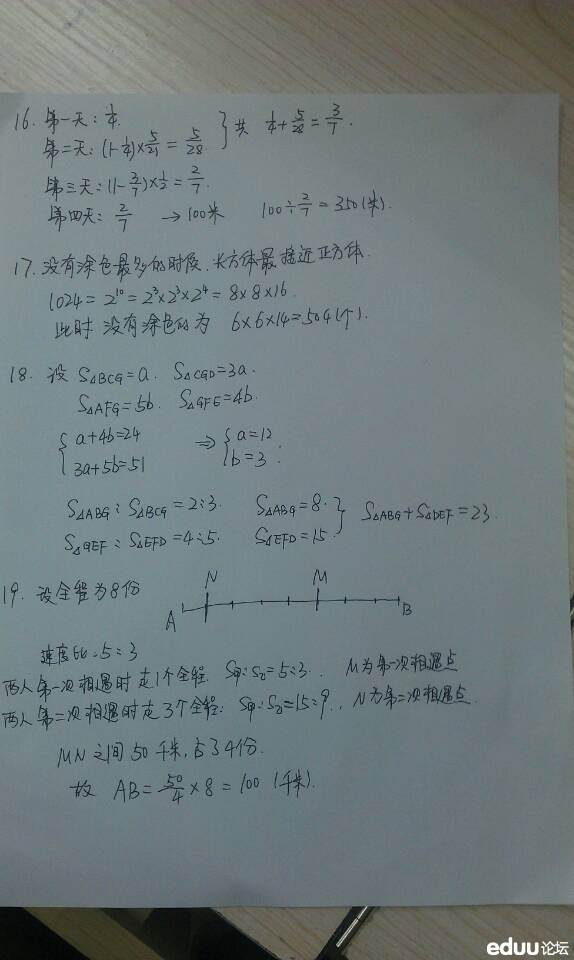 16. 第一天: 1/4. } 共 1/4+5/28=3/7.
第二天: (1-1/4)×5/21=5/28.
第三天: (1-3/7)×1/2=2/7.
第四天: 2/7 →100米 100÷2/7=350(米).
17. 没有涂色最多的时候,长方体最接近正方体.
1024=2^10=2^3×2^3×2^4=8×8×16.
此时 没有涂色的为 6×6×14=504(个).
18. 设 S△BCG=a. S△CGD=3a.
S△AFG=5b. S△GFE=4b.
{a+4b=24 ⇒ {a=12
3a+5b=51 b=3.
S△ABG:S△BCG=2:3. S△ABG=8. } S△ABG+S△DEF=23.
S△GEF:S△EFD=4:5. S△EFD=15.
19. 设全程为8份 A N M B
速度比:5:3
两人第一次相遇时走1个全程. S甲:S乙=5:3. M为第一次相遇点
两人第二次相遇时走3个全程: S甲:S乙=15:9. N为第二次相遇点.
MN之间50千米,占34份.
故 AB=50/4×8=100(千米).
eduu论坛